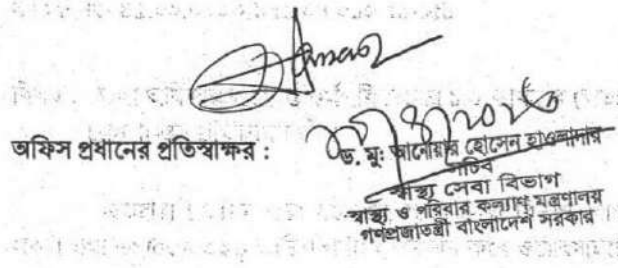 অফিস প্রধানের প্রতিস্বাক্ষর :
ড. মু: আনোয়ার হোসেন হাওলাদার
সচিব
স্বাস্থ্য সেবা বিভাগ
স্বাস্থ্য ও পরিবার কল্যাণ মন্ত্রণালয়
গণপ্রজাতন্ত্রী বাংলাদেশ সরকার